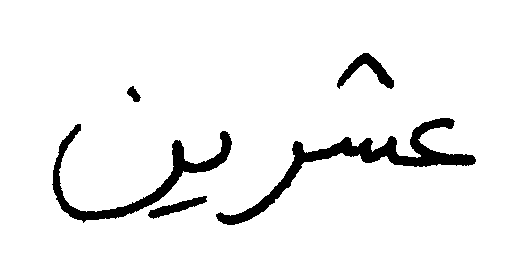 عشرين